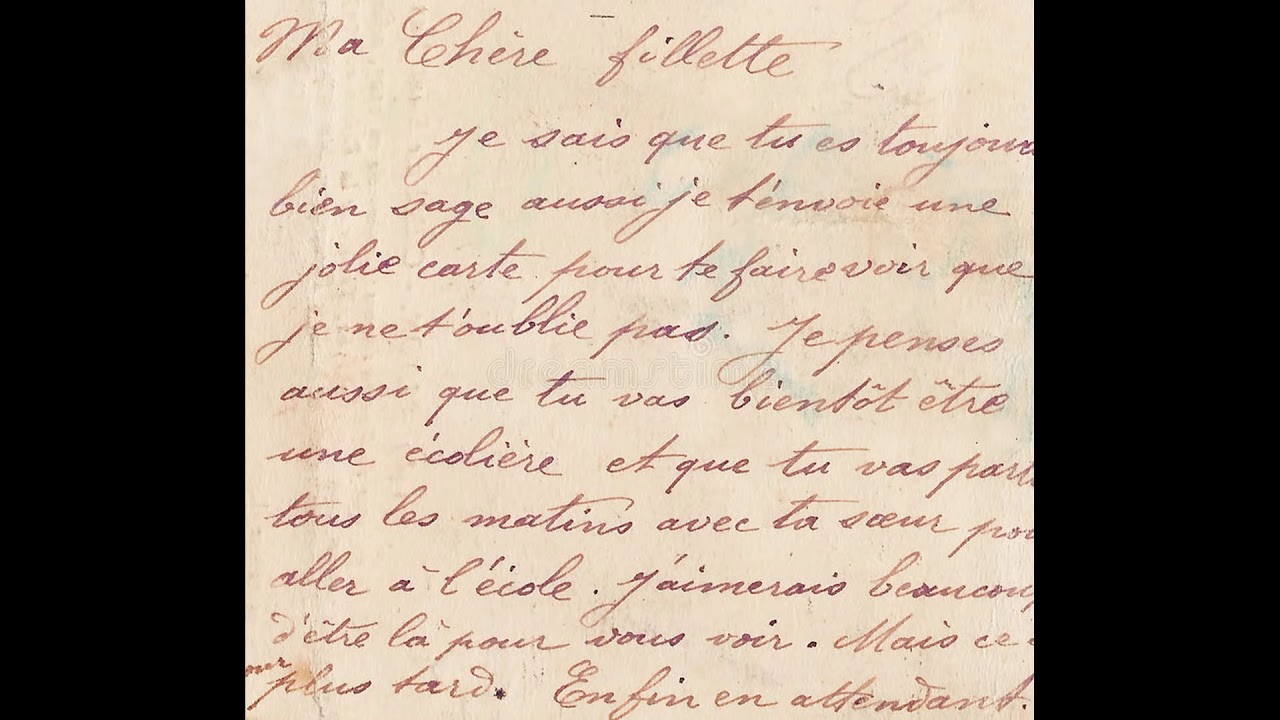 Ma Chère fillette
Je sais que tu es toujours
bien sage aussi je t'envoie une
jolie carte pour te faire voir que
je ne t'oublie pas. Je penses
dreamstime
aussi que tu vas bientôt être
une écolière et que tu vas part
tous les matins avec ta sœur pou
aller à l'école. J'aimerais beaucoup
d'être là pour vous voir. Mais ce
plus tard. Enfin en attendant.